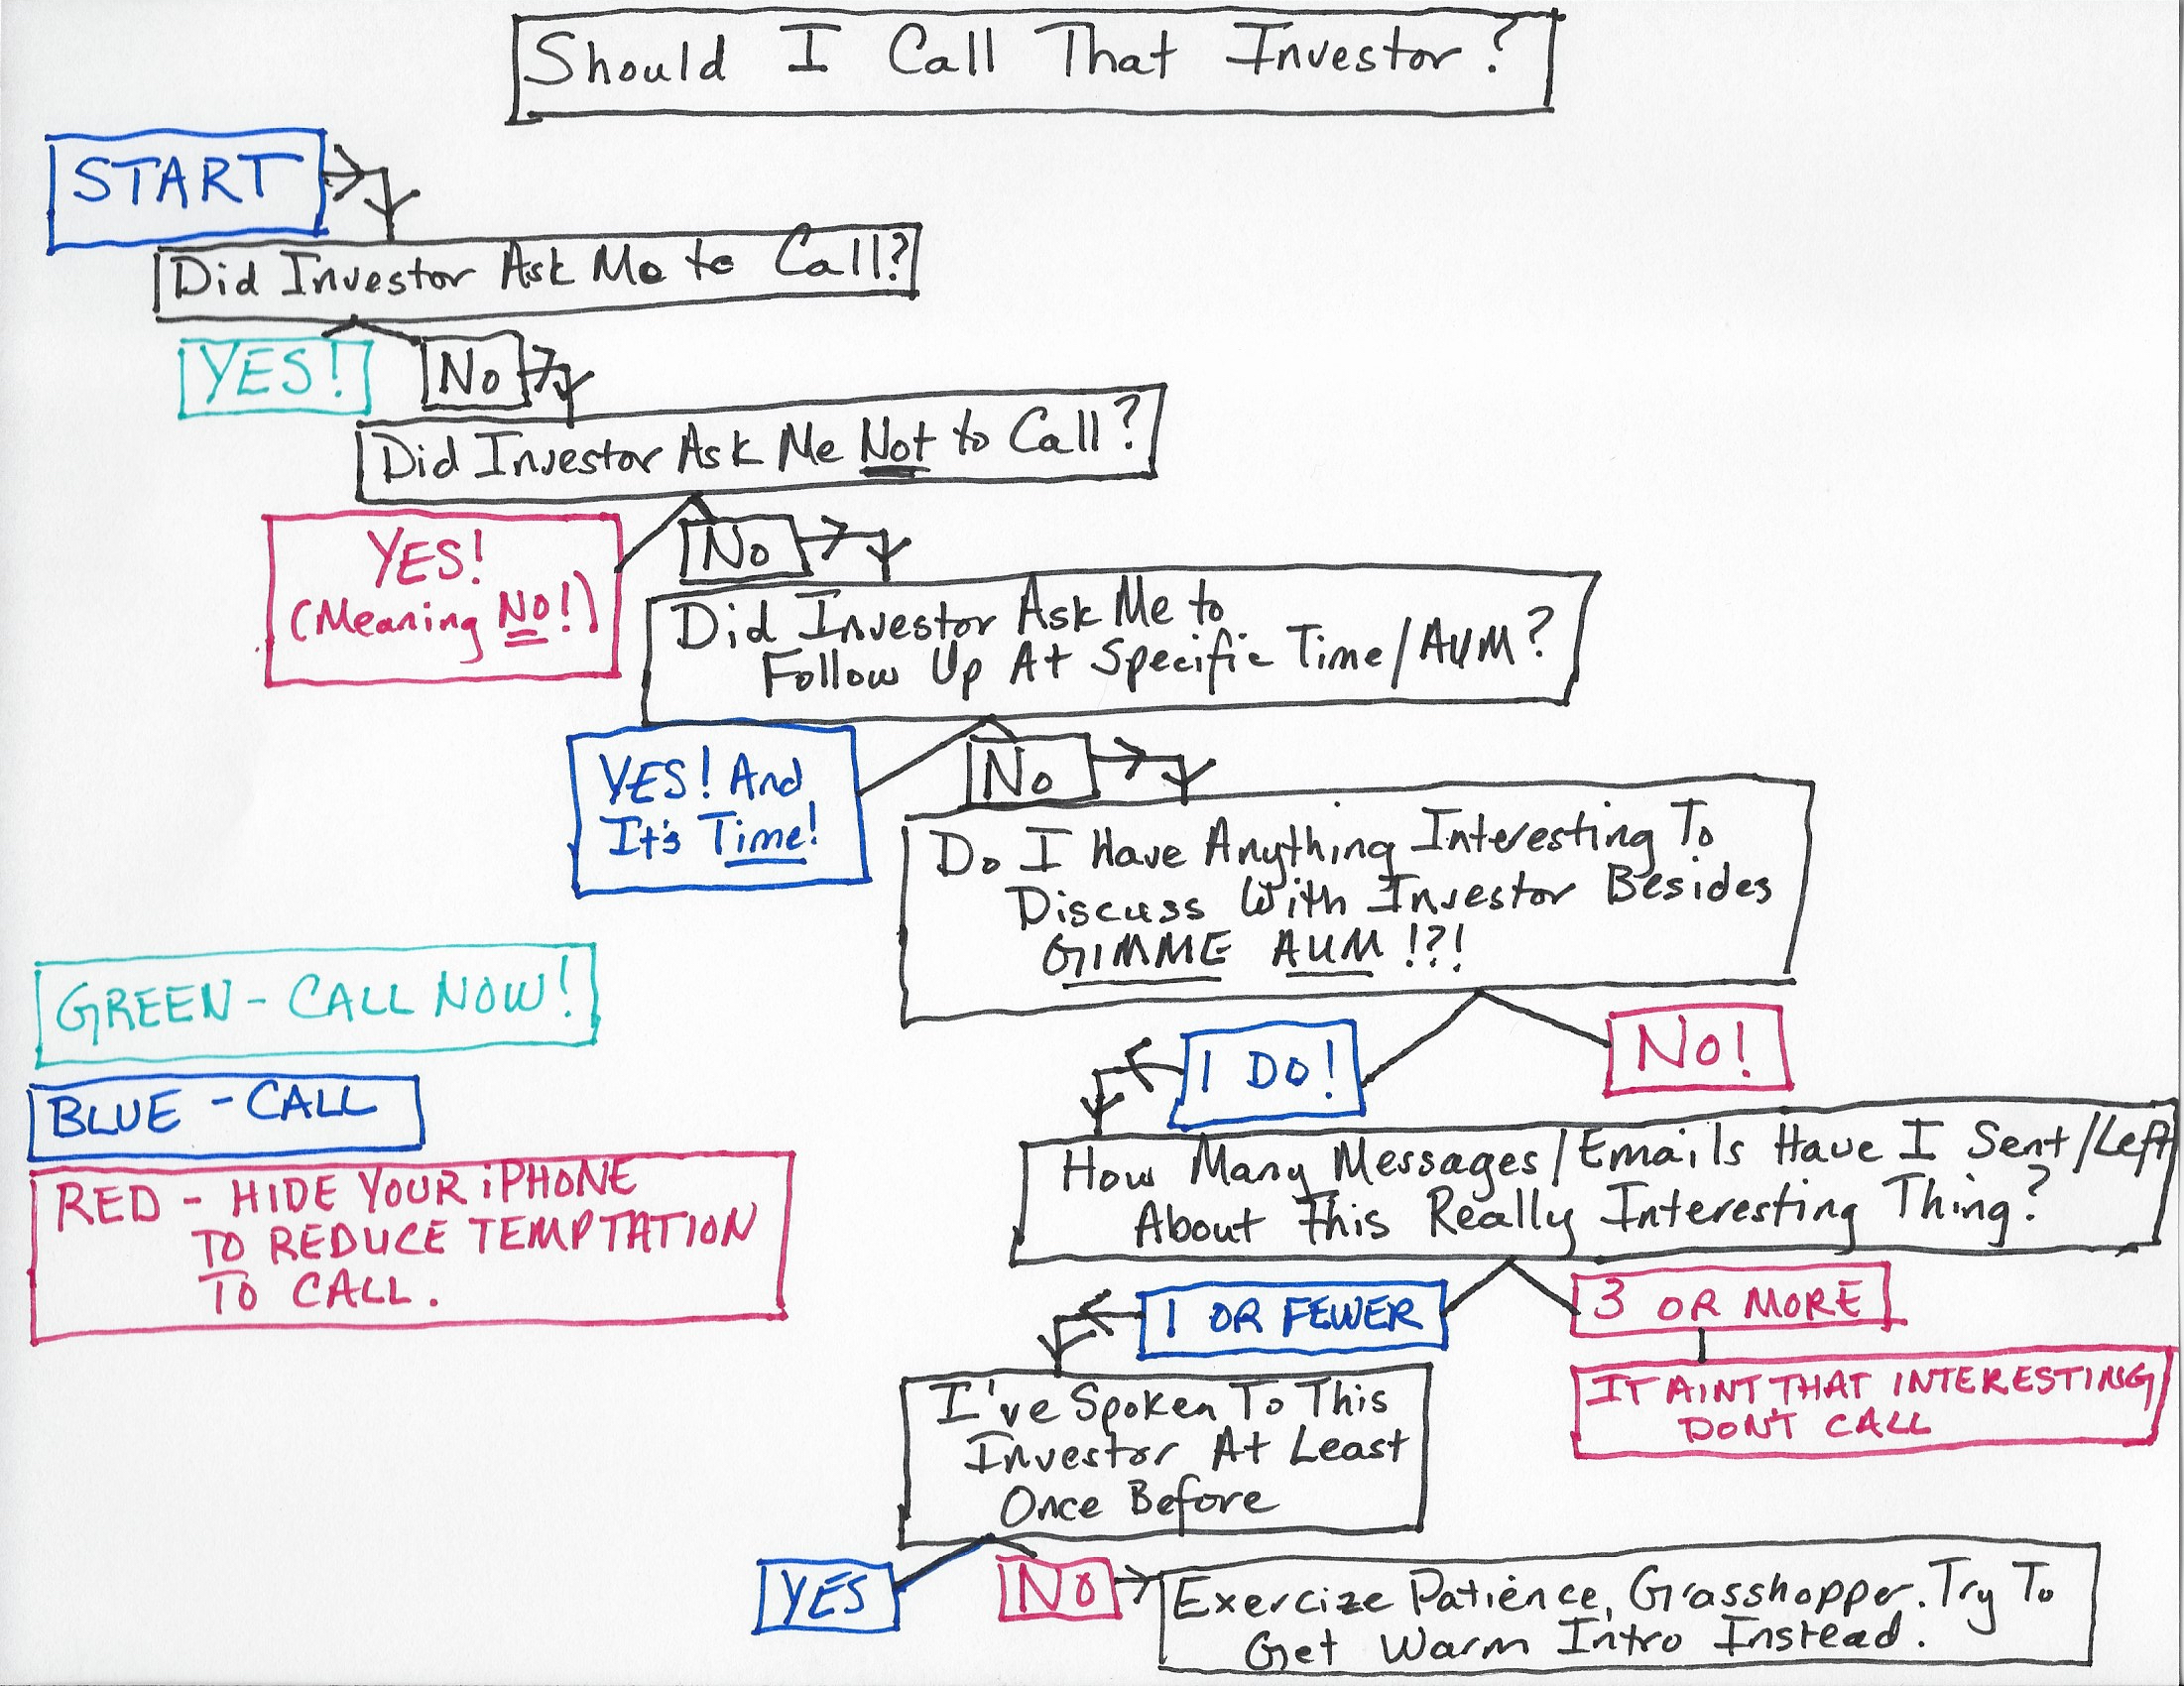 Should I Call That Investor?
START
Did Investor Ask Me to Call?
YES!
No
Did Investor Ask Me Not to Call?
YES!
(Meaning No!)
No
Did Investor Ask Me to
Follow Up At Specific Time/AUM?
YES! And
It's Time!
No
Do I Have Anything Interesting To
Discuss With Investor Besides
GIMME AUM!?!
I DO!
No!
How Many Messages/Emails Have I Sent/Left
About This Really Interesting Thing?
1 OR FEWER
3 OR MORE
IT AINT THAT INTERESTING
DON'T CALL
I've Spoken To This
Investor At Least
Once Before
YES
No
Exercize Patience, Grasshopper. Try To
Get Warm Intro Instead.
GREEN - CALL NOW!
BLUE - CALL
RED - HIDE YOUR iPHONE
TO REDUCE TEMPTATION
TO CALL.